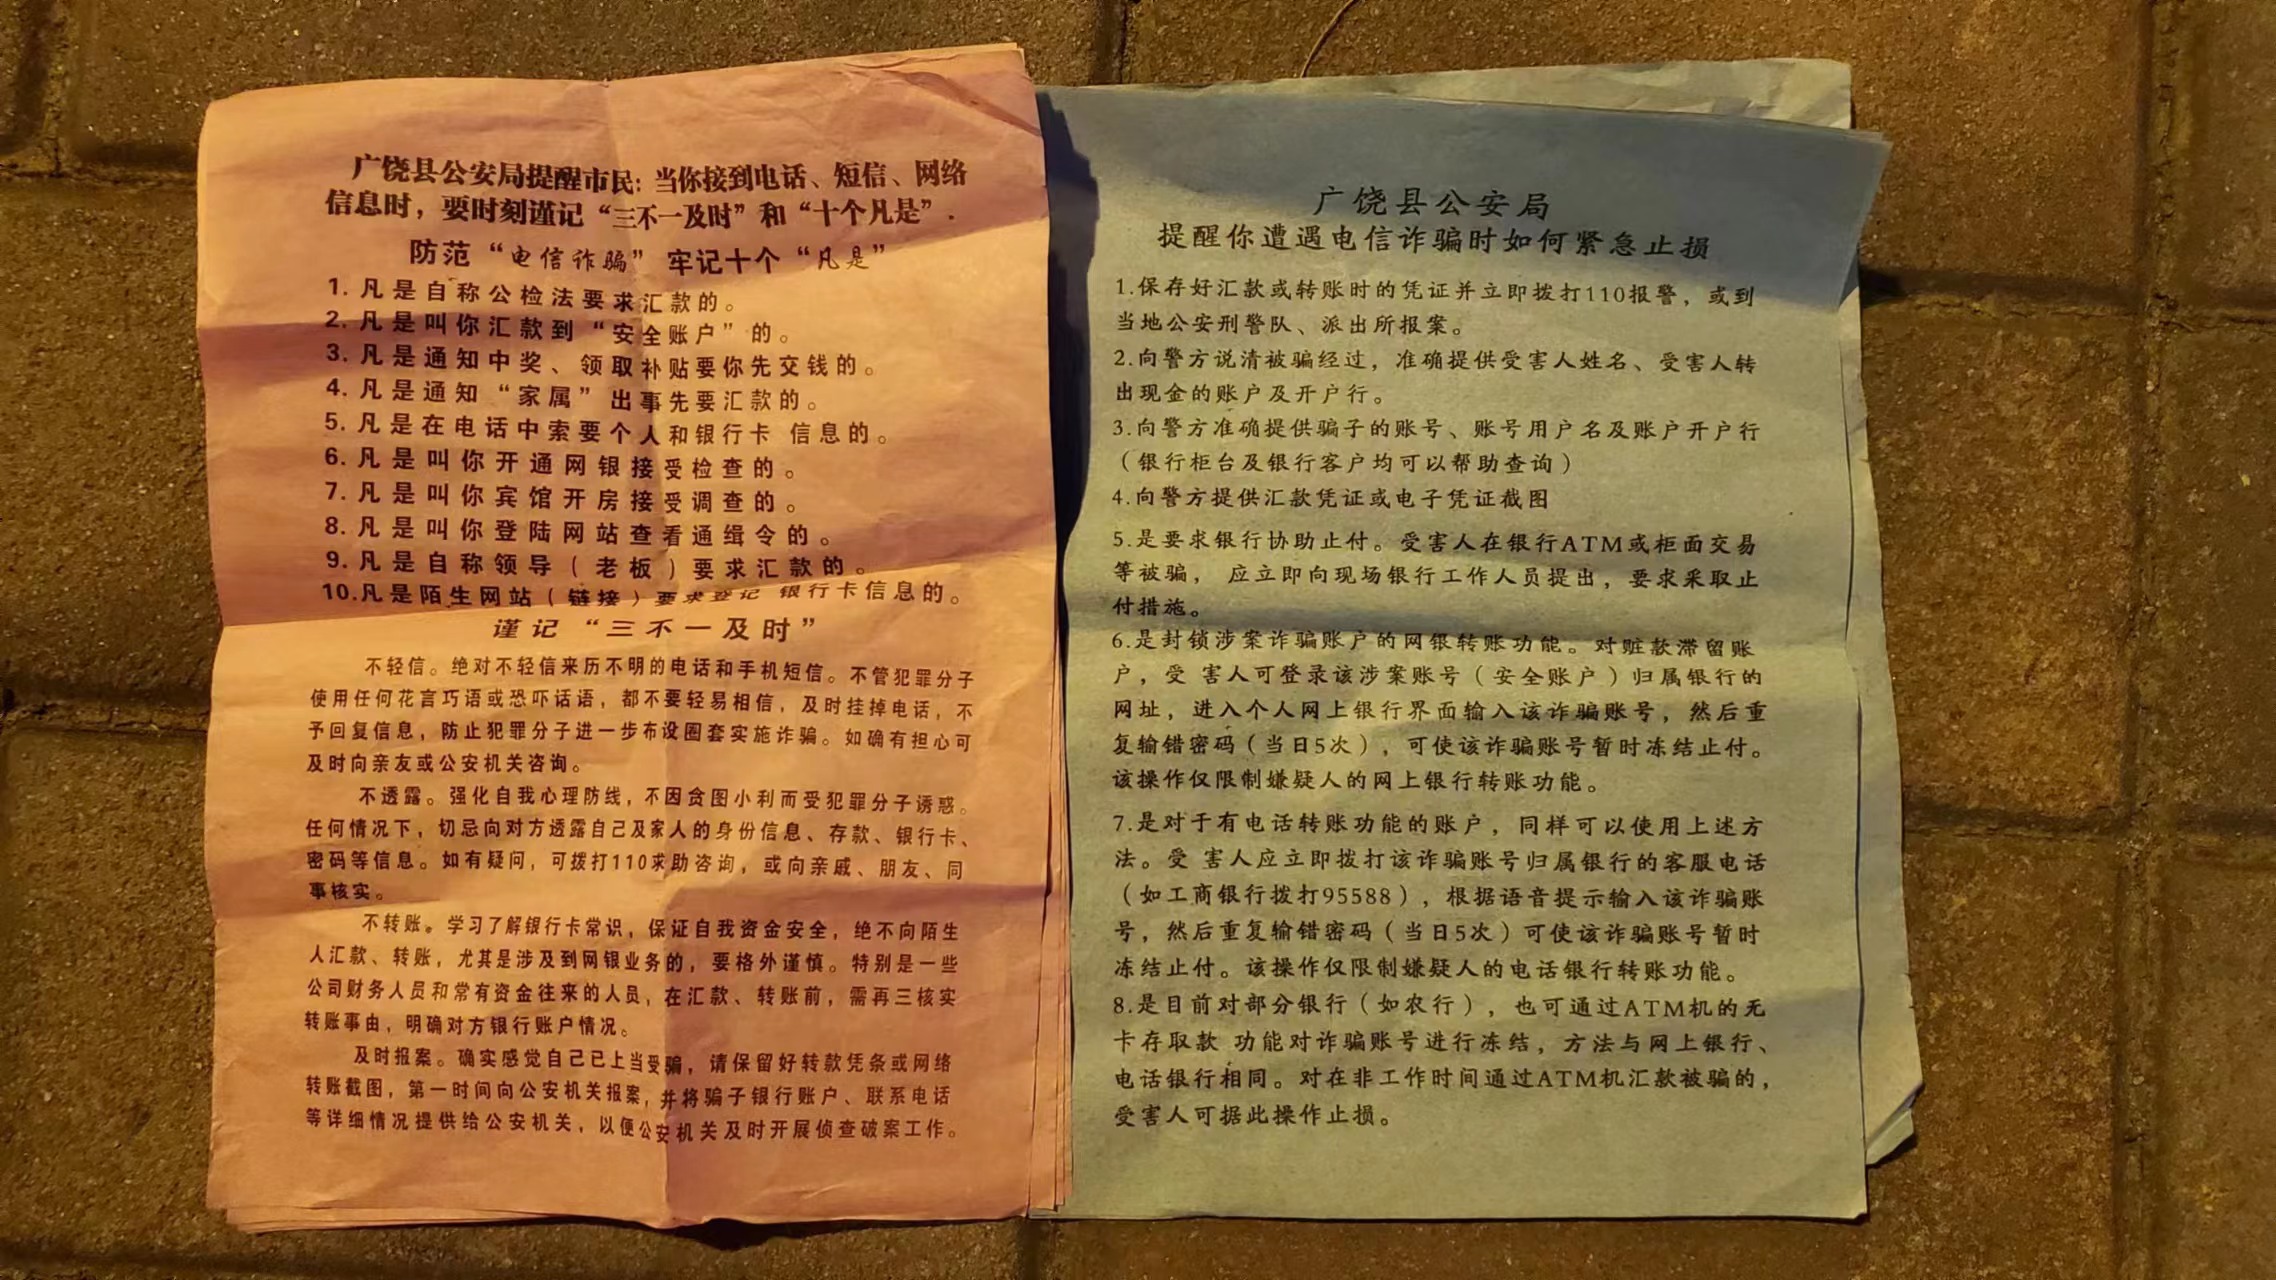 广饶县公安局提醒市民：当你接到电话、短信、网络
信息时，要时刻谨记“三不一及时”和“十个凡是”.
防范“电信诈骗”牢记十个“凡是”
1.凡是自称公检法要求汇款的。
2.凡是叫你汇款到“安全账户”的。
3.凡是通知中奖、领取补贴要你先交钱的。
4.凡是通知“家属”出事先要汇款的。
5.凡是在电话中索要个人和银行卡 信息的。
6.凡是叫你开通网银接受检查的。
7.凡是叫你宾馆开房接受调查的。
8.凡是叫你登陆网站查看通缉令的。
9.凡是自称领导（老板）要求汇款的。
10.凡是陌生网站（链接）要求登记 银行卡信息的。
谨记“三不一及时”
不轻信。绝对不轻信来历不明的电话和手机短信。不管犯罪分子
使用任何花言巧语或恐吓话语，都不要轻易相信，及时挂掉电话，不
予回复信息，防止犯罪分子进一步布设圈套实施诈骗。如确有担心可
及时向亲友或公安机关咨询。
不透露。强化自我心理防线，不因贪图小利而受犯罪分子诱惑。
任何情况下，切忌向对方透露自己及家人的身份信息、存款、银行卡、
密码等信息。如有疑问，可拨打110求助咨询，或向亲戚、朋友、同
事核实。
不转账。学习了解银行卡常识，保证自我资金安全，绝不向陌生
人汇款、转账，尤其是涉及到网银业务的，要格外谨慎。特别是一些
公司财务人员和常有资金往来的人员，在汇款、转账前，需再三核实
转账事由，明确对方银行账户情况。
及时报案。确实感觉自己已上当受骗，请保留好转款凭条或网络
转账截图，第一时间向公安机关报案，并将骗子银行账户、联系电话
等详细情况提供给公安机关，以便公安机关及时开展侦查破案工作。
广饶县公安局
提醒你遭遇电信诈骗时如何紧急止损
1.保存好汇款或转账时的凭证并立即拨打110报警，或到
当地公安刑警队、派出所报案。
2.向警方说清被骗经过，准确提供受害人姓名、受害人转
出现金的账户及开户行。
3.向警方准确提供骗子的账号、账号用户名及账户开户行
（银行柜台及银行客户均可以帮助查询）
4.向警方提供汇款凭证或电子凭证截图
5.是要求银行协助止付。受害人在银行ATM或柜面交易
等被骗， 应立即向现场银行工作人员提出，要求采取止
付措施。
6.是封锁涉案诈骗账户的网银转账功能。对赃款滞留账
户，受 害人可登录该涉案账号（安全账户）归属银行的
网址，进入个人网上银行界面输入该诈骗账号，然后重
复输错密码（当日5次），可使该诈骗账号暂时冻结止付。
该操作仅限制嫌疑人的网上银行转账功能。
7.是对于有电话转账功能的账户，同样可以使用上述方
法。受 害人应立即拨打该诈骗账号归属银行的客服电话
（如工商银行拨打95588），根据语音提示输入该诈骗账
号，然后重复输错密码（当日5次）可使该诈骗账号暂时
冻结止付。该操作仅限制嫌疑人的电话银行转账功能。
8.是目前对部分银行（如农行），也可通过ATM机的无
卡存取款 功能对诈骗账号进行冻结，方法与网上银行、
电话银行相同。对在非工作时间通过ATM机汇款被骗的，
受害人可据此操作止损。